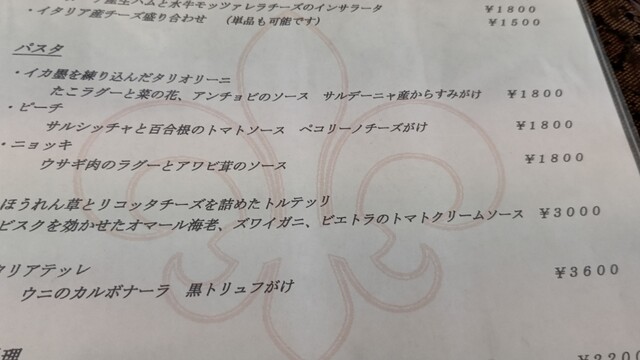 産生ハムと水牛モッツァレラチーズのインサラータ ￥1800
・イタリア産チーズ盛り合わせ （単品も可能です） ￥1500
パスタ
・イカ墨を練り込んだタリオリーニ
たこラグーと菜の花、アンチョビのソース サルデーニャ産からすみがけ ￥1800
・ピーチ
サルシッチャと百合根のトマトソース ペコリーノチーズがけ ￥1800
・ニョッキ
ウサギ肉のラグーとアワビ茸のソース ￥1800
ほうれん草とリコッタチーズを詰めたトルテッリ
ビスクを効かせたオマール海老、ズワイガニ、ビエトラのトマトクリームソース ￥3000
タリアテッレ
ウニのカルボナーラ 黒トリュフがけ ￥3600
理